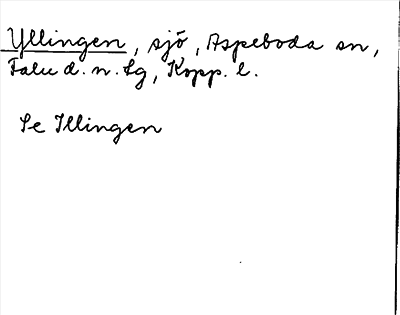 Yllingen, sjö, Aspeboda sn,
Falu d. n. Lg, Kopp. l.
Se Illingen